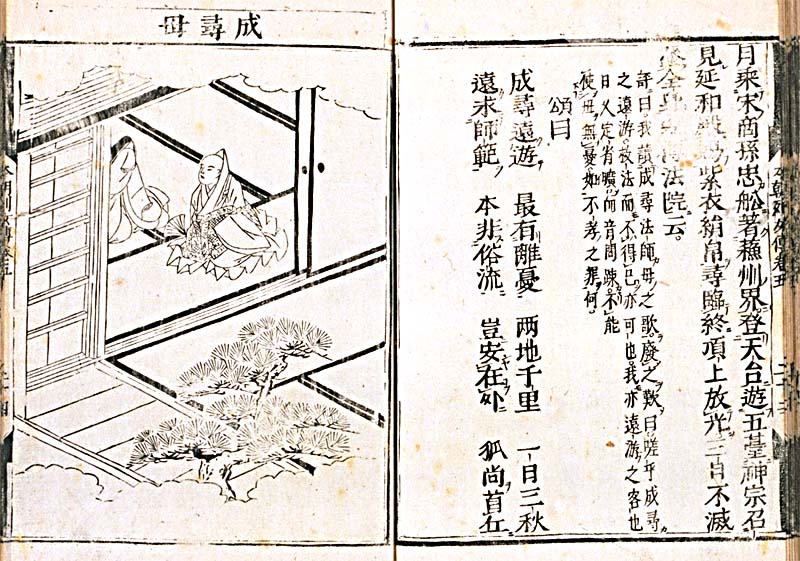 月来宋商孫忠船著蘓州界登天台遊五臺神宗召
見延和殿賜紫衣絹帛尋臨終頂上放光三日不滅
全身 法院云
評曰我讀成尋法師母之歌廢之歎曰嗟乎成尋
之遠游故法而不得已亦可也我亦遠游之客也
日乂定省曠師音問踈不能
使母無憂如不孝之罪何
頌曰
成尋遠遊 最有離憂 两地千里 一日三秋
遠求師範 本非俗流 豈安在外 狐尚首丘
成尋母